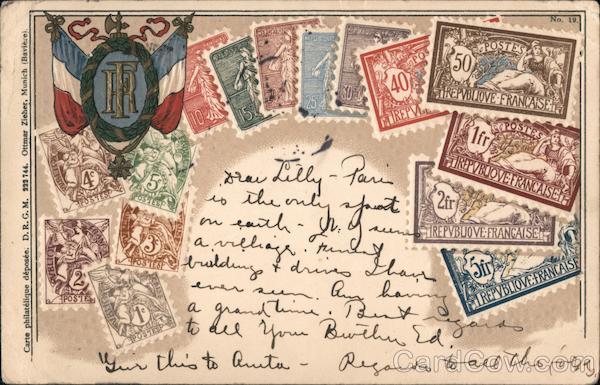 No. 19.
Carte philatélique déposée. D. R. G. M. 222 744. Ottmar Zieher, Munich (Bavière).
RF
10
15
25
40
POSTES
50
REPVBLIQVE·FRANÇAISE
POSTES
1fr
REPVBLIQVE·FRANÇAISE
2fr
REPVBLIQVE·FRANÇAISE
5fr
REPVBLIQVE·FRANÇAISE
4c
5c
2c
POSTES
3c
1c
Dear Lilly - Paris
is the only spot
on earth - N.Y. seems
a village. Finest
building & drives I have
ever seen. Am having
a grand time. Best regards
to all Your Brother Ed
Give this to Anita - Regards to all the
CardCow.com